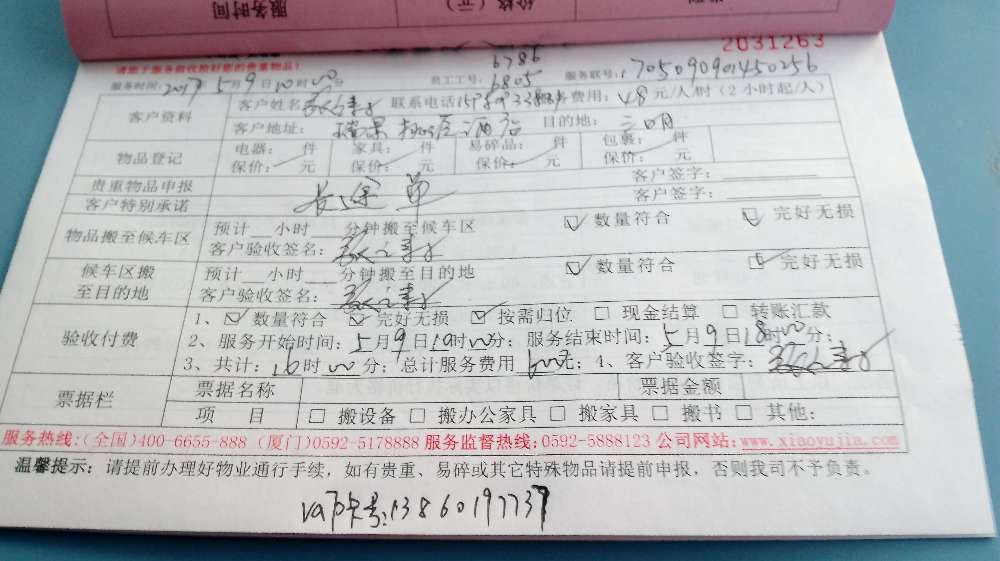 服务时间 价格（元）
2031263
请您于服务前收拾好您的贵重物品！ 6786
服务时间: 2017年5月9日10时00分 员工工号: 6805 服务联号: 1705090901450256
客户资料 客户姓名 联系电话 服务费用: 48元/人/时（2小时起/人）
客户地址: 酒店 目的地: 三明
物品登记 电器: 件 家具: 件 易碎品: 件 包裹: 件
保价: 元 保价: 元 保价: 元 保价: 元
贵重物品申报 客户签字:
客户特别承诺 长途单 客户签字:
物品搬至候车区 预计__小时__分钟搬至候车区 ☑数量符合 ☑完好无损
客户验收签名:
候车区搬至目的地 预计__小时__分钟搬至目的地 ☑数量符合 ☑完好无损
客户验收签名:
验收付费 1、☑数量符合 ☑完好无损 ☑按需归位 □现金结算 □转账汇款
2、服务开始时间: 5月9日10时00分; 服务结束时间: 5月9日18时00分;
3、共计: 16时00分; 总计服务费用 元; 4、客户验收签字:
票据栏 票据名称 票据金额
项 目 □搬设备 □搬办公家具 □搬家具 □搬书 □其他:
服务热线:(全国)400-6655-888 (厦门)0592-5178888 服务监督热线:0592-5888123 公司网站:www.xiaoyujia.com
温馨提示: 请提前办理好物业通行手续，如有贵重、易碎或其它特殊物品请提前申报，否则我司不予负责。
卡号:13860197737